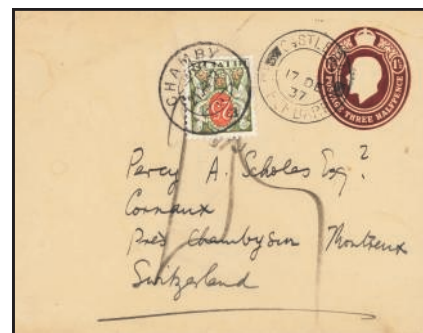 CHAMBY
17 DE
37
POSTAGE THREE HALFPENCE
Percy A. Scholes Esq ?
Cornaux
Près Chambysur Montreux
Switzerland